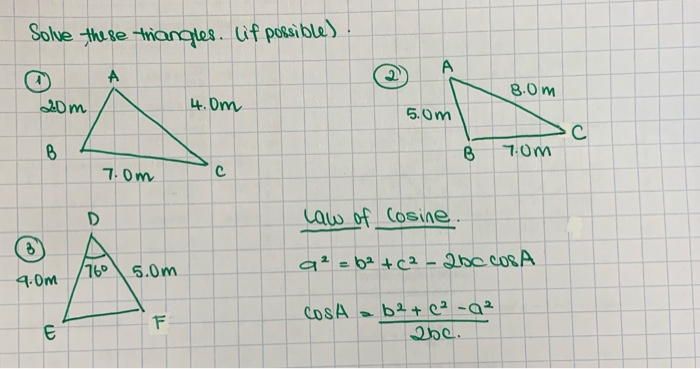 Solve these triangles. (if possible).
① A
20m 4.0m
B 7.0m C
② A
8.0m
5.0m
B 7.0m C
③ D
9.0m 76° 5.0m
E F
Law of Cosine.
a² = b² + c² - 2bc cosA
cosA = b² + c² - a²
2bc.